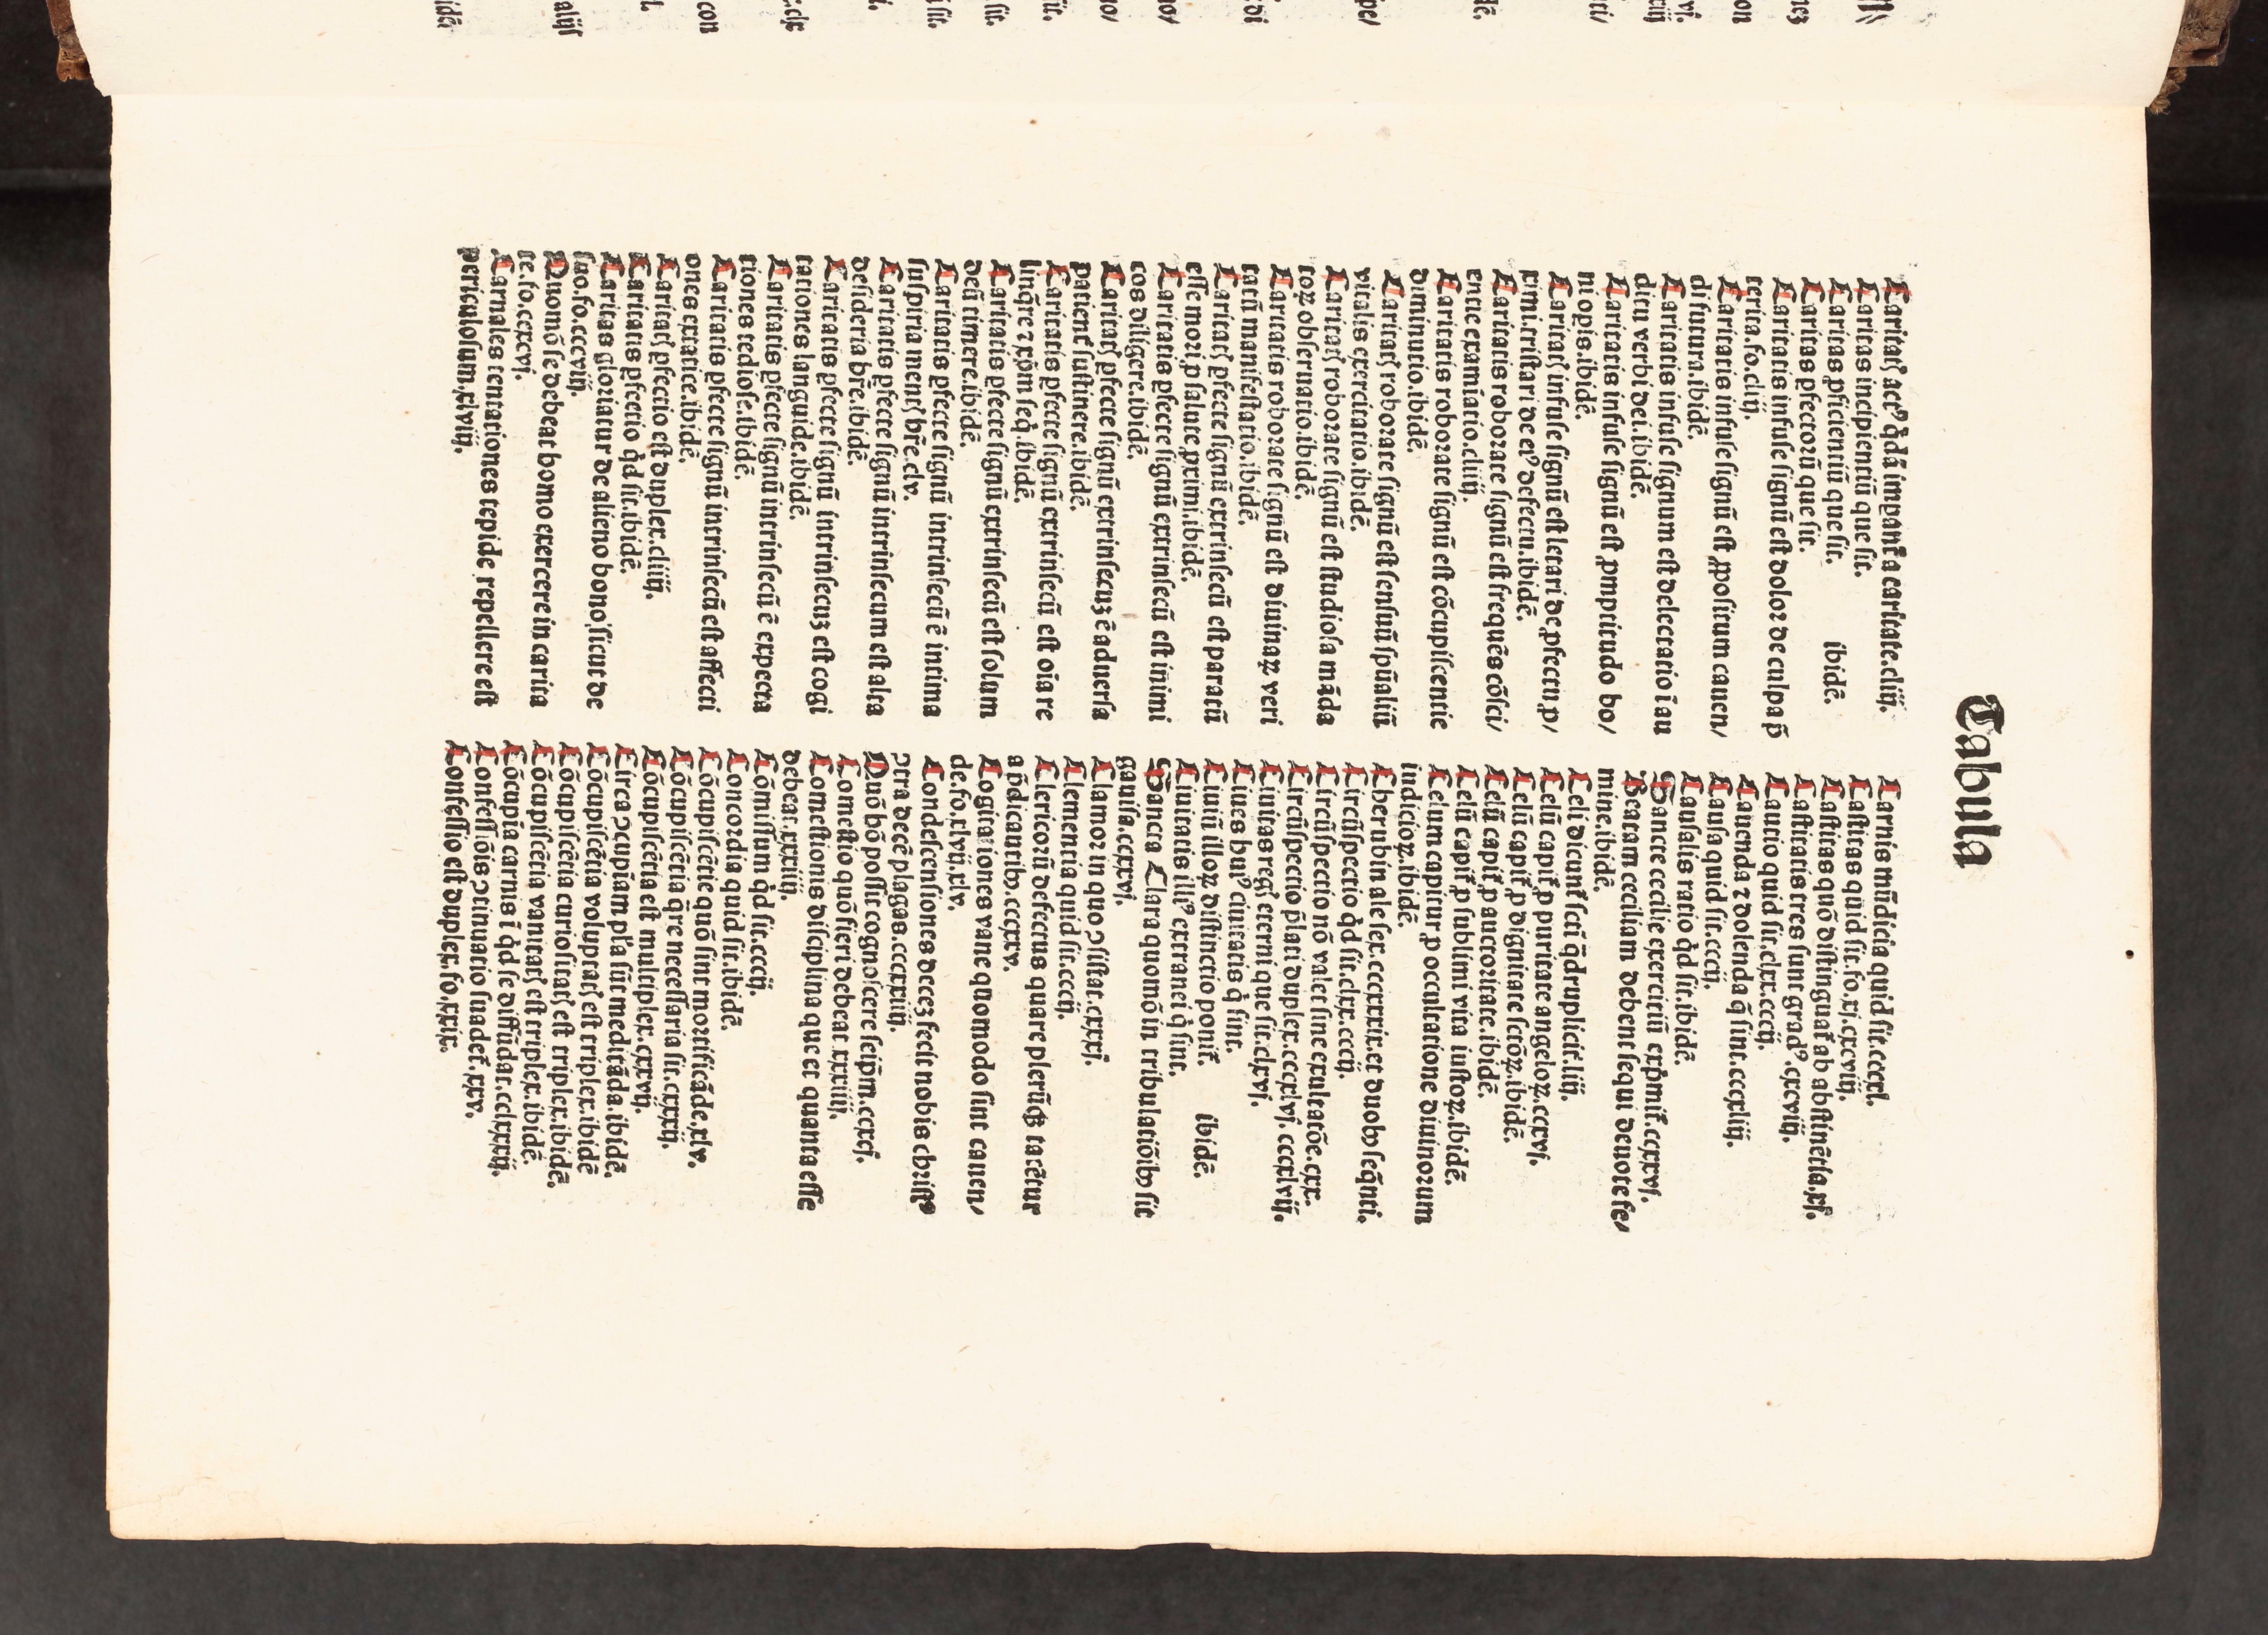 Tabula
Caritatꝭ actꝰ q̄dā impant̄ a caritate.cliiij.
Caritas incipientiū que sit.
Caritas ꝓficientiū que sit. ibidē.
Caritas ꝑfectorū que sit.
Caritatis infuse signū est dolor de culpa p̄
terita.fo.cliij.
Caritatis infuse signū est ꝓpositum cauen⸗
di futura.ibidē.
Caritatis infuse signum est delectatio ī au
ditu verbi dei.ibidē.
Caritatis infuse signū est ꝓmptitudo bo⸗
ni opis.ibidē.
Caritatꝭ infuse signū est letari de ꝓfectu ꝓ⸗
ximi.tristari de eiꝰ defectu.ibidē.
Caritatis roborate signū est frequēs cōsci⸗
entie examiatio.cliiij.
Caritatis roborate signū est cōcupiscentie
diminutio.ibidē.
Caritatꝭ roborate signū est sensuū spūaliū
vitalis exercitatio.ibidē.
Caritatꝭ roborate signū est studiosa māda
toꝝ obseruatio.ibidē.
Caritatis roborate signū est diuinaꝝ veri
tatū manifestatio.ibidē.
Caritatꝭ ꝑfecte signū extrinsecū est paratū
esse mori ꝓ salute ꝓximi.ibidē.
Caritatis ꝑfecte signū extrinsecū est inimi
cos diligere.ibidē.
Caritatꝭ ꝑfecte signū extrinsecuz ē aduersa
patient̄ sustinere.ibidē.
Caritatis ꝑfecte signū extrinsecū est oīa re
linq̄re ⁊ xp̄m seq̇.ibidē.
Caritatis ꝑfecte signū extrinsecū est solum
deū timere.ibidē.
Caritatis ꝑfecte signū intrinsecū ē intima
suspiria mentꝭ hr̄e.clv.
Caritatis ꝑfecte signū intrinsecum est alta
desideria hr̄e.ibidē.
Caritatis ꝑfecte signū intrinsecuz est cogi
tationes languide.ibidē.
Caritatis ꝑfecte signū intrinsecū ē expecta
tiones tediose.ibidē.
Caritatis ꝑfecte signū intrinsecū est affecti
ones extatice.ibidē.
Caritatꝭ ꝑfectio est duplex.cliiij.
Caritatis ꝑfectio q̇d sit.ibidē.
Caritas gloriatur de alieno bono sicut de
suo.fo.cccviij.
Quomō se debeat homo exercere in carita
te.fo.ccxcvj.
Carnales tentationes tepide repellere est
periculosum.xlviij.
Carnis mūdicia quid sit.ccxxl.
Castitas quid sit.fo.xj.cxcviij.
Castitas quō distinguat̄ ab abstinētia.xj.
Castitatis tres sunt gradꝰ.cxcviij.
Cautio quid sit.clxx.cccij.
Cauenda ⁊ dolenda q̄ sint.cccxliij.
Causa quid sit.cccij.
Causalis ratio q̇d sit.ibidē.
Sancte cecilie exercitiū exp̄mit̄.ccxxvj.
Beatam ceciliam debent sequi deuote fe⸗
mine.ibidē.
Celi dicunt̄ sctī q̄druplicit̄.liij.
Celū capit̄ ꝓ puritate angeloꝝ.ccxvj.
Celū capit̄ ꝓ dignitate sctōꝝ.ibidē.
Celū capit̄ ꝓ auctoritate.ibidē.
Celū capit̄ ꝓ sublimi vita iustoꝝ.ibidē.
Celum capitur ꝓ occultatione diuinorum
iudicioꝝ.ibidē.
Cherubin ale sex.cccxxxix.et duobꝰ seq̄nti.
Circūspectio q̇d sit.clxx.cccij.
Circūspectio nō valet sine exultatōe.cxx.
Circūspectio p̄lati duplex.cccxlvj.cccxlvij.
Ciuitas regꝭ eterni que sit.clxvj.
Ciues huiꝰ ciuitatis q̇ sint.
Ciuiū illoꝝ distinctio ponit̄. ibidē.
Ciuitatis illiꝰ extranei q̇ sint.
Sancta Clara quomō in tribulatiōibꝰ sit
gauisa.ccxxvj.
Clamor in quo ↄsistat.cxxxj.
Clementia quid sit.cccij.
Clericorū defectus quare plerūqꝫ tacētur
a p̄dicantibꝰ.cccxxv.
Cogitationes vane quomodo sint cauen⸗
de.fo.xlvij.xlv.
Condescensiones decez fecit nobis christꝰ
ↄtra decē plagas.cccxxiiij.
Quō hō possit cognoscere seip̄m.ccxcj.
Comestio quō fieri debeat.xxxiiij.
Comestionis disciplina que et quanta esse
debeat.xxxiiij.
Cōmissum q̇d sit.cccij.
Concordia quid sit.ibidē.
Cōcupiscētie quō sint mortificāde.xlv.
Cōcupiscētia q̄re necessaria sit.cxxxij.
Cōcupiscētia est multiplex.cxxvij.
Circa ↄcupīam pl̄a sūt meditāda.ibidē.
Cōcupiscētia voluptatꝭ est triplex.ibidē
Cōcupiscētia curiositatꝭ est triplex.ibidē.
Cōcupiscētia vanitatꝭ est triplex.ibidē.
Cōcupīa carnis ī q̇d se diffūdat.cclxxxij.
Confessiōis ↄtinuatio suadet̄.xxv.
Confessio est duplex.fo.xxix.